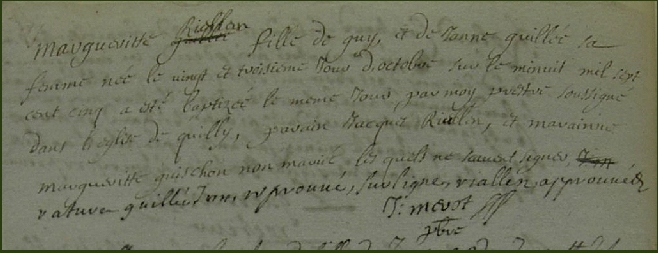 margueritte Riallen guillée fille de guy, et de Janne guillée sa
femme née le vingt et troisieme Jour d'octobre sur le minuit mil sept
cent cinq a été baptizée le meme Jour par moy prêtre soussigné
dans l'eglise de quilly, parain Jacque Riallen, et maraine
marguerite guischon non marié lesquels ne scavent signer,
rature guillée, reprouvé, sur ligne, riallen, approuvée
J: mevot
pbre